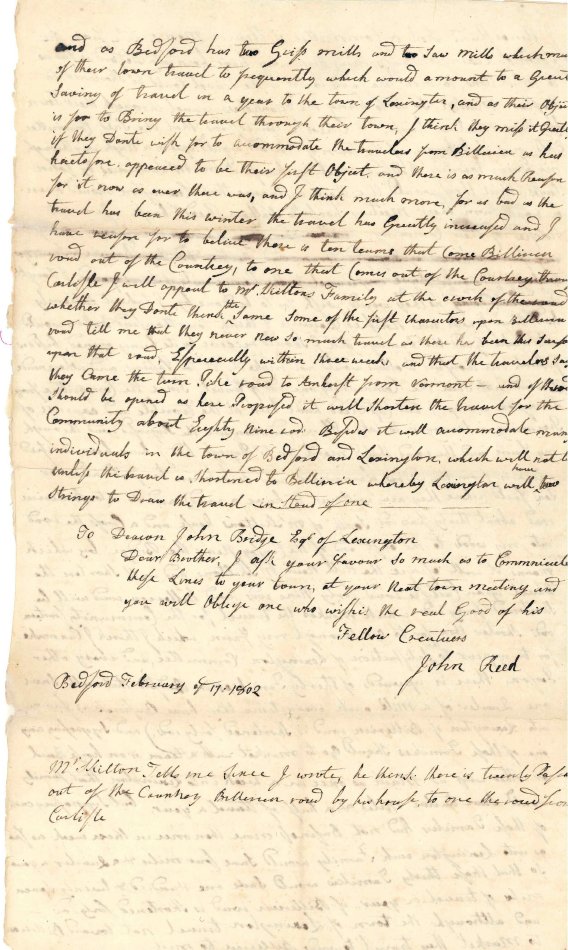 and as Bedford has two Griss mills and two Saw mills which
of their town travel to frequently which would amount to a Great
Saving of travel in a year to the town of Lexington, and as their Object
is for to Bring the travel through their town, I think they miss it Greatly
if they Donte wish for to accommodate the travelers from Billirica as has
heretofore appeared to be their first Object, and there is as much Reason
for it now as ever there was, and I think much more, for as bad as the
travel has been this winter the travel has Greatly increased and I
have reason for to believe there is ten teams that Come Billirica
road out of the Countrey, to one that Comes out of the Countrey through
Carlisle I will appeal to Mr. Skiltons Family at the
whether they Donte think the Same Some of the first Charectors upon Billirica
road tell me that they never now So much travel as there has been this Season
upon that road, Especially within three weeks and that the travelers Say
they Came the turn Pike road to Amherst from Varmont — and if
Should be opened as here Proposed it will Shorten the travel for the
Community about Eighty Nine rod Besides it will accommodate many
individuals in the town of Bedford and Lexington, which will not
unless the travel is Shortened to Billirica whereby Lexington will have two
Strings to Draw the travel in Stead of one
To Deacon John Bridge Esqr of Lexington
Dear Brother, I ask your favour So much as to Communicate
these Lines to your town, at your Next town meeting and
you will Oblige one who wishes the real Good of his
Fellow Creatuers
John Reed
Bedford February ye 17th 1802
Mr Skilton Tells me Since I wrote, he thinks there is twenty
out of the Countrey Billirica road by his house, to one the road from
Carlisle